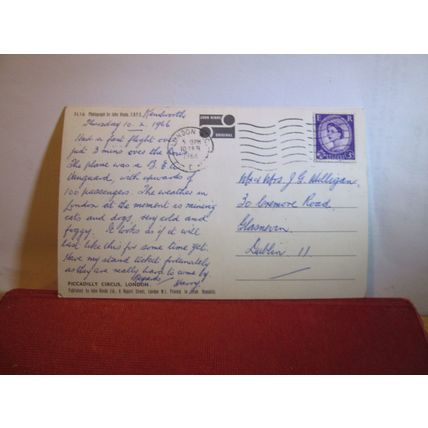 2L14 Photograph by John Hinde, F.R.P.S.
Kenilworth
Thursday 10.2.1966
Had a fast flight over
just 3 mins over the hour.
The plane was a B.E.A.
Vanguard, with upwards of
100 passengers. The weather in
London at the moment is raining
cats and dogs, very cold and
foggy. It looks as if it will
last like this for some time yet.
Have my stand ticket fortunately
as they are really hard to come by.
Regards
Harry
PICCADILLY CIRCUS, LONDON.
Published by John Hinde Ltd.,
JOHN HINDE
ORIGINAL
LONDON
1966
E R
Mr & Mrs. J. G. Mulligan,
30 Cremore Road,
Glasnevin,
Dublin 11.